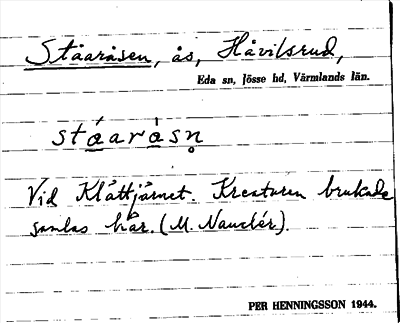 Ståaråsen, ås, Håvilsrud,
Eda sn, Jösse hd, Värmlands län.
stá̱arà̱sn̥
Vid Klåttjärnet. Kreaturen brukade
samlas här. (M. Nauclér).
PER HENNINGSSON 1944.